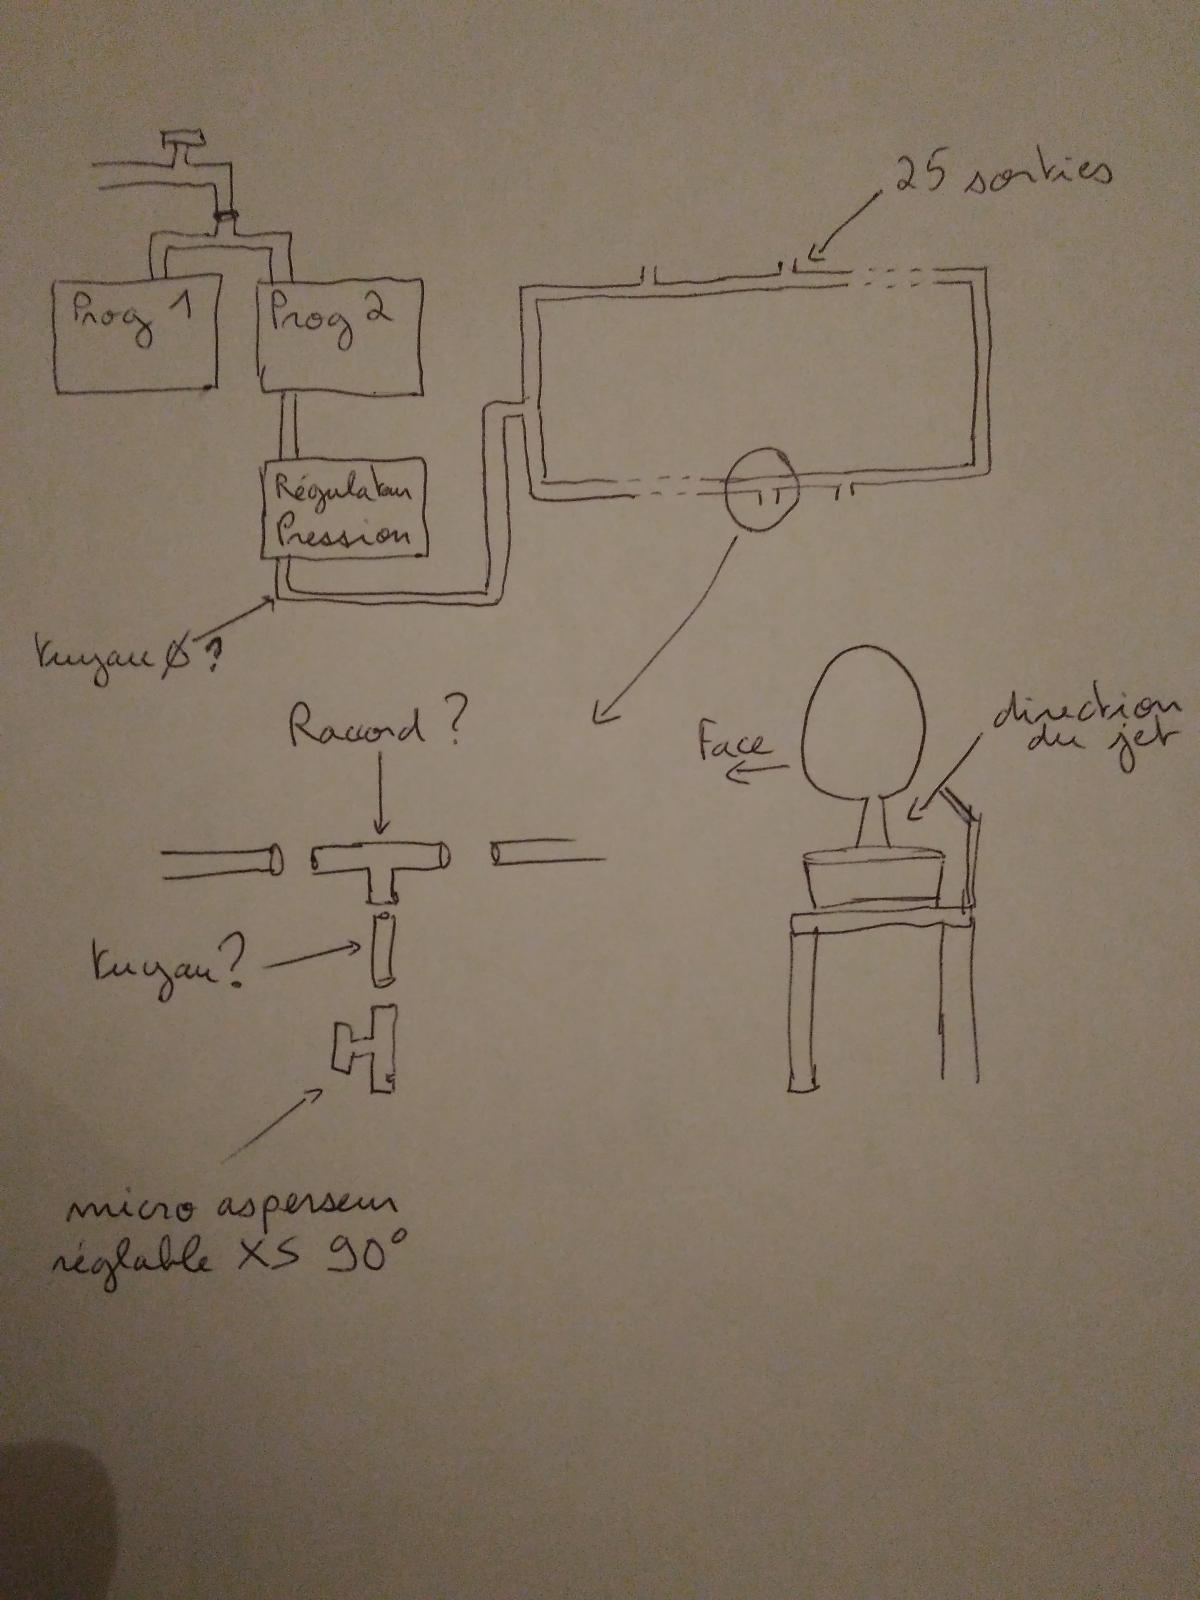 25 sorties
Prog 1
Prog 2
Régulateur
Pression
tuyau Ø?
Raccord ?
Face
direction
du jet
tuyau?
micro asperseur
réglable XS 90°